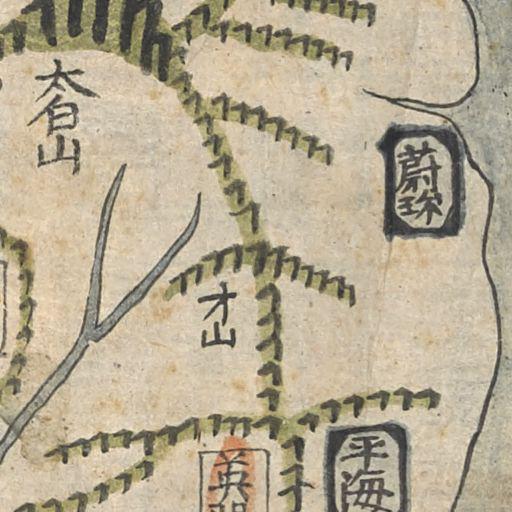 太白山
蔚珎
才山
平海
英